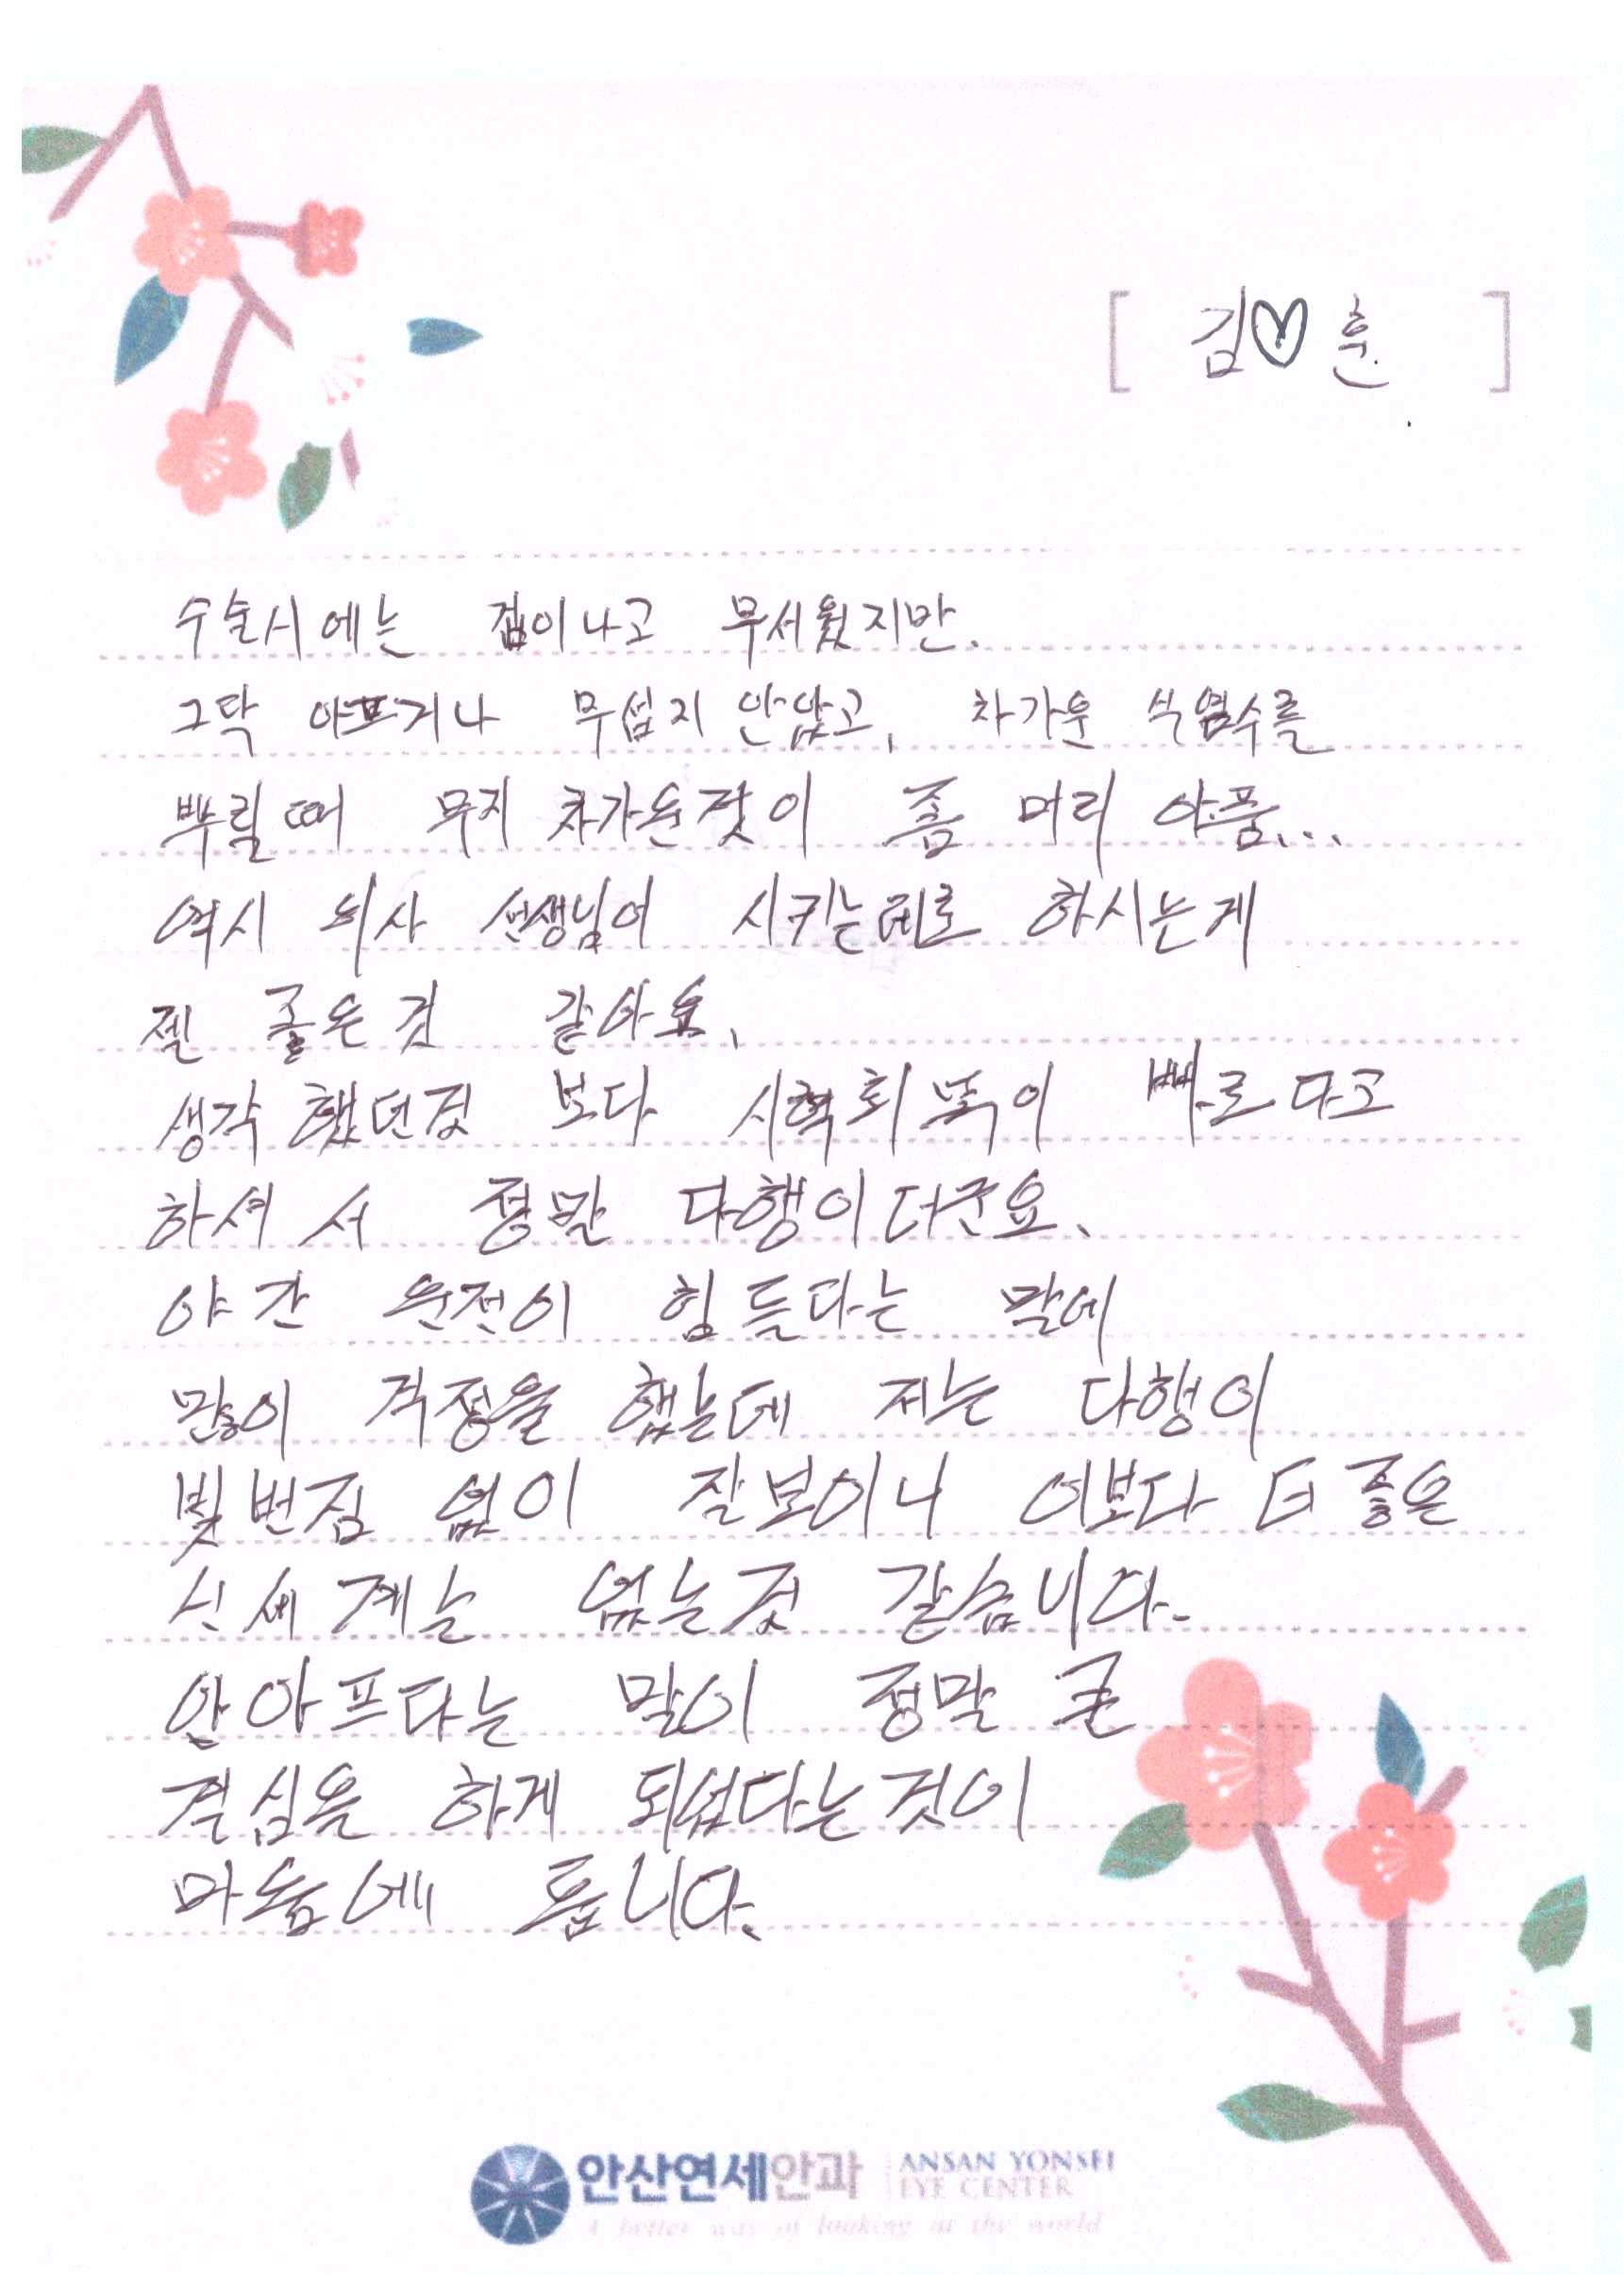 [ 김♡훈 ]
수술시에는 겁이나고 무서웠지만.
그닥 아프거나 무섭지 안았고, 차가운 식염수를
뿌릴때 무지 차가운것이 좀 머리 아품...
역시 의사 선생님이 시키는데로 하시는게
젤 좋은것 같아요.
생각했던것 보다 시력회복이 빠르다고
하셔서 정말 다행이더군요.
야간 운전이 힘들다는 말에
많이 걱정을 했는데 저는 다행이
빛번짐 없이 잘보이니 이보다 더 좋은
신세계는 없는것 같습니다.
안아프다는 말이 정말 큰
결심을 하게 되었다는것이
마음에 듭니다.
안산연세안과 ANSAN YONSEI
EYE CENTER
A better way of looking at the world